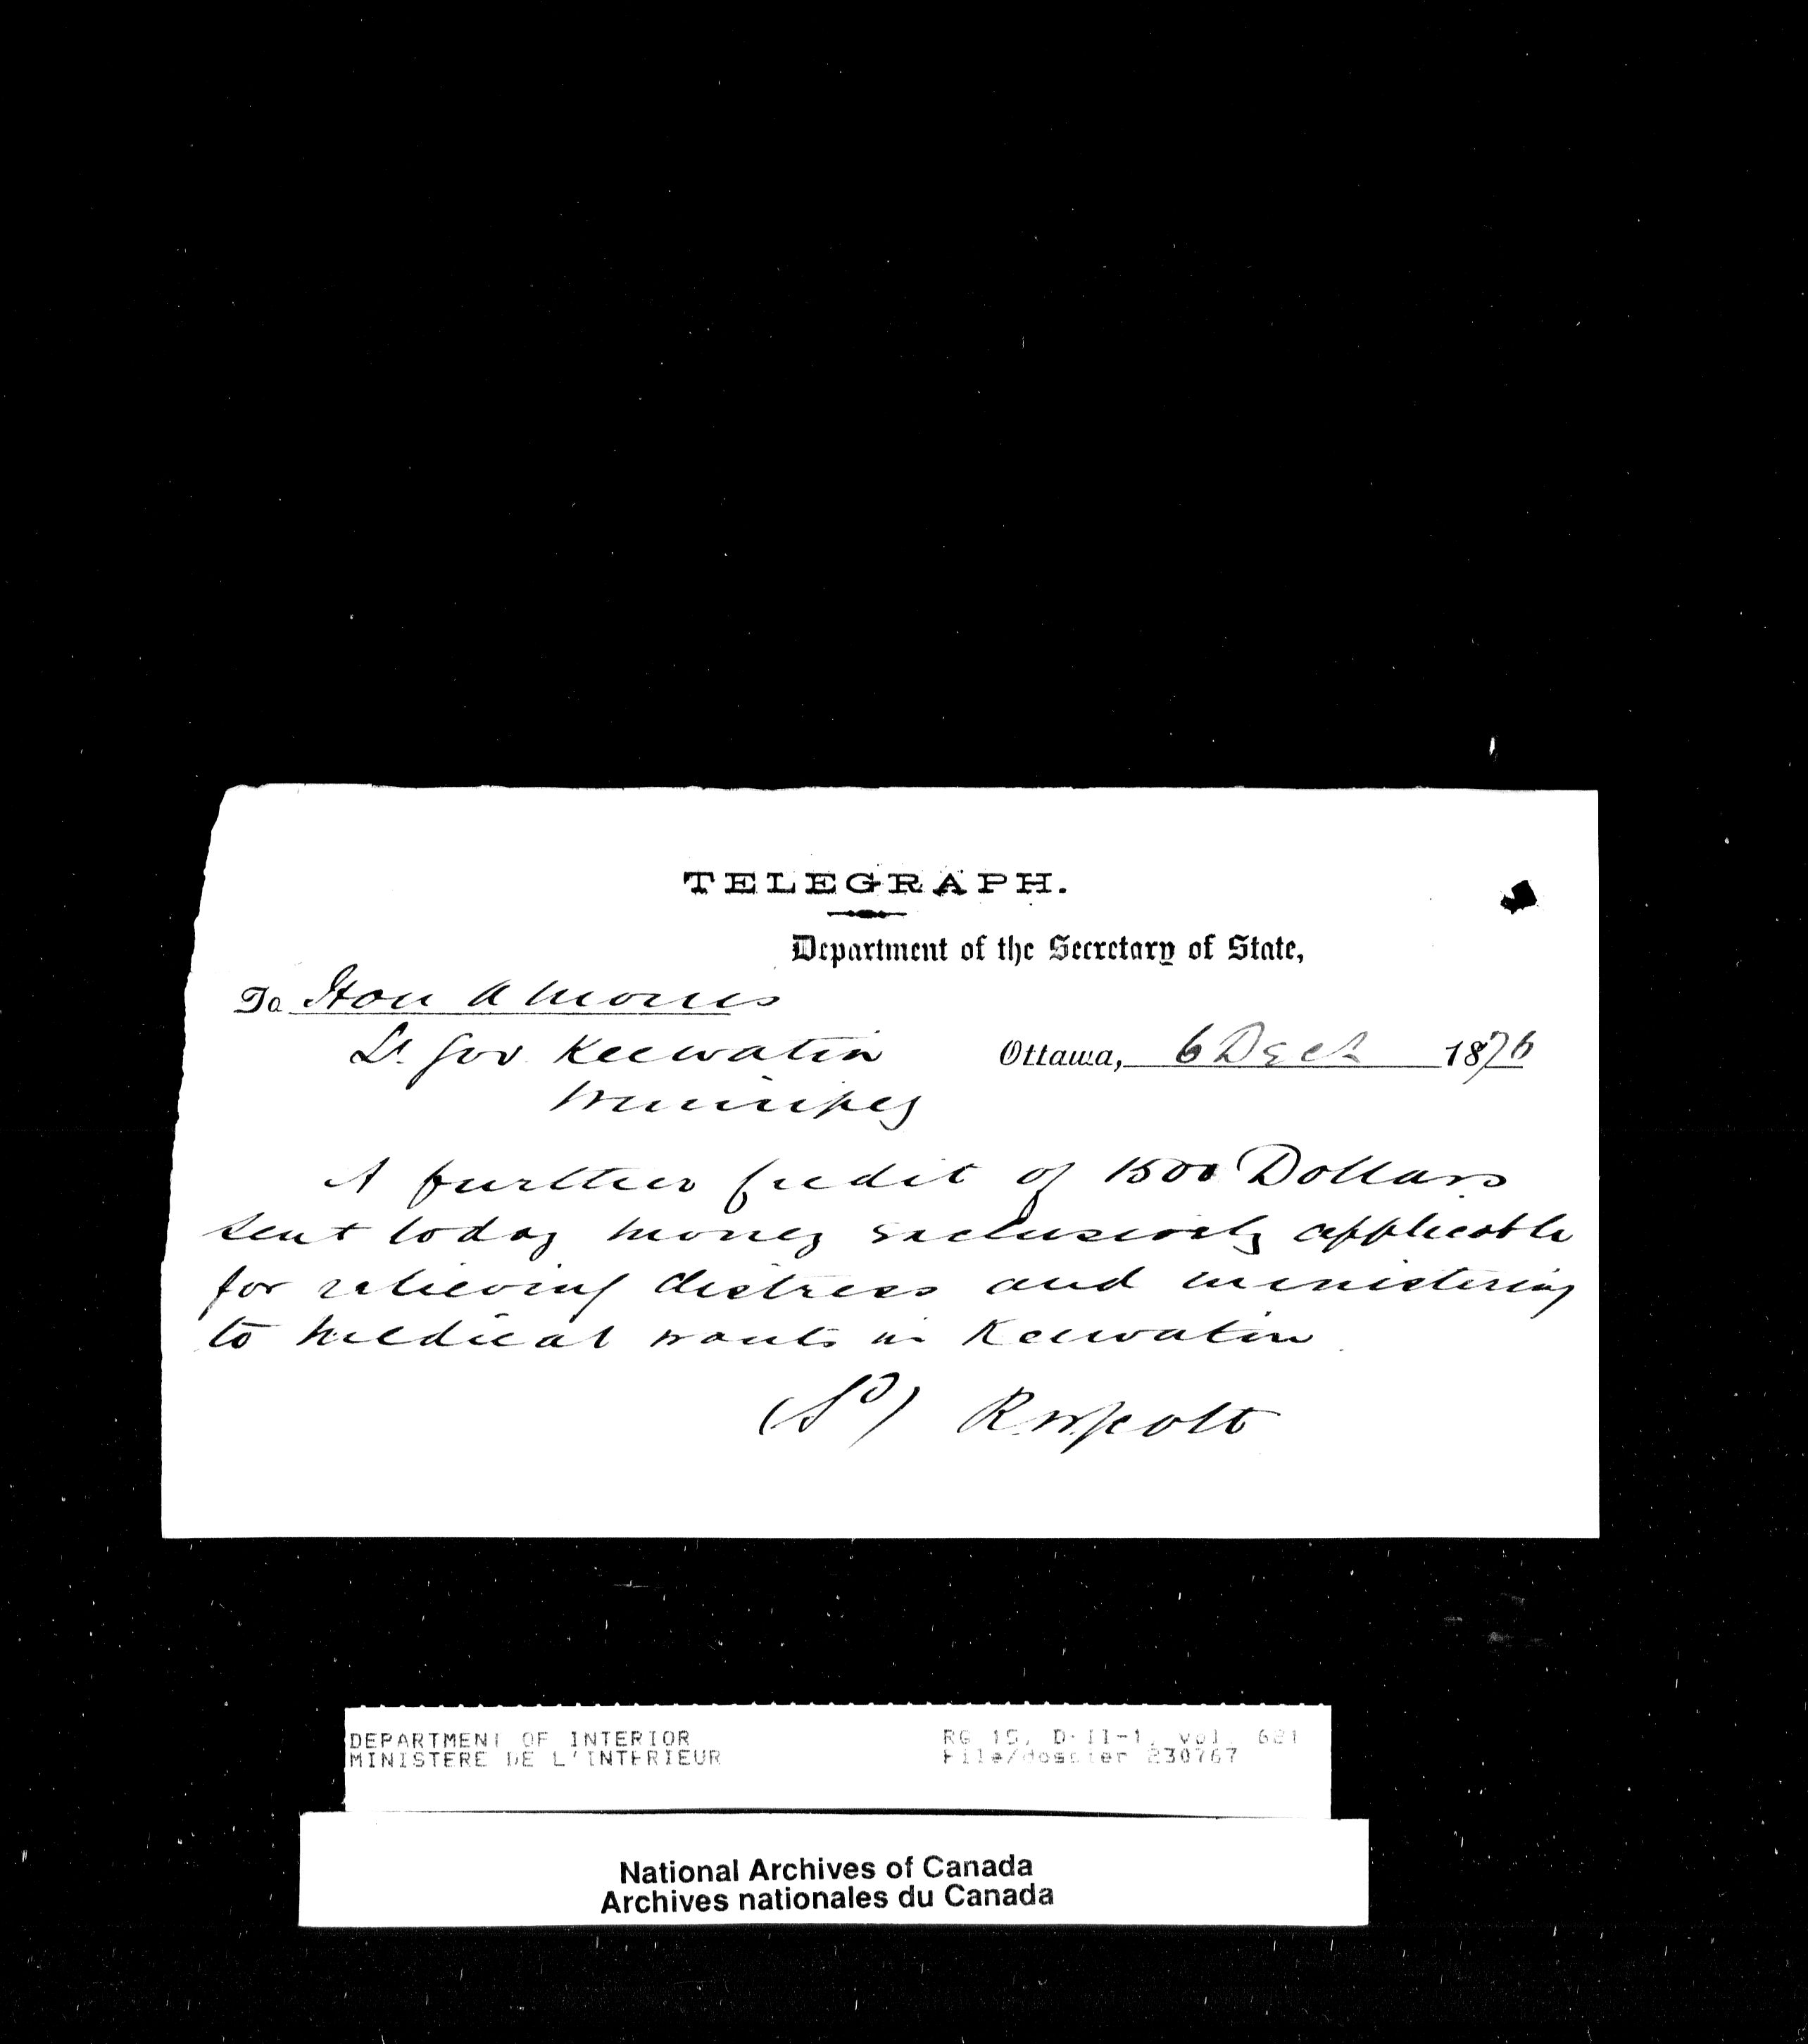 TELEGRAPH.
Department of the Secretary of State,
To Hon A Morris
Lt. Gov. Keewatin
Ottawa, 6 Dec 1876
Winnipeg
A further Credit of 1500 Dollars
sent today money exclusively applicable
for relieving distress and ministering
to medical wants in Keewatin
(Sd) R.W. Scott
DEPARTMENT OF INTERIOR
MINISTERE DE L'INTERIEUR
RG 15, D-II-1, vol. 621
File/dossier 230767
National Archives of Canada
Archives nationales du Canada